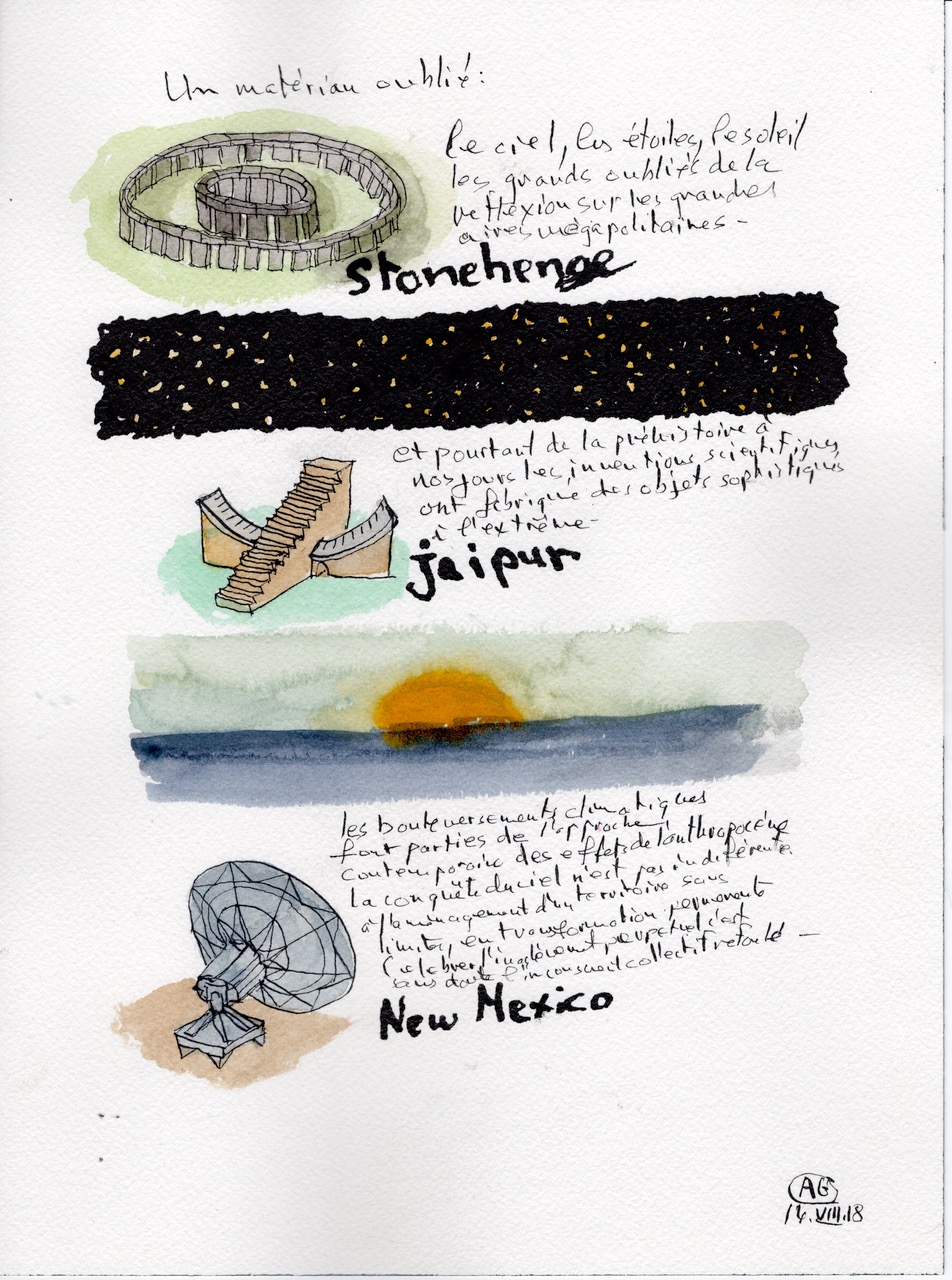 Un matériau oublié:
le ciel, les étoiles, le soleil
les grands oubliés de la
reflexion sur les grandes
aires mégapolitaines -
Stonehenge
et pourtant de la préhistoire à
nos jours les inventions scientifiques
ont fabriqué des objets sophistiqués
à l'extrême -
jaipur
les bouleversements climatiques
font parties de l'approche
contemporaine des effets de l'anthropocène
la conquête du ciel n'est pas indifférente
à l'aménagement d'un territoire sans
limites, en transformation permanente
Célébrer perpétuel c'est
sans doute l'inconscient collectif refoulé -
New Mexico
AG
14.VIII.18